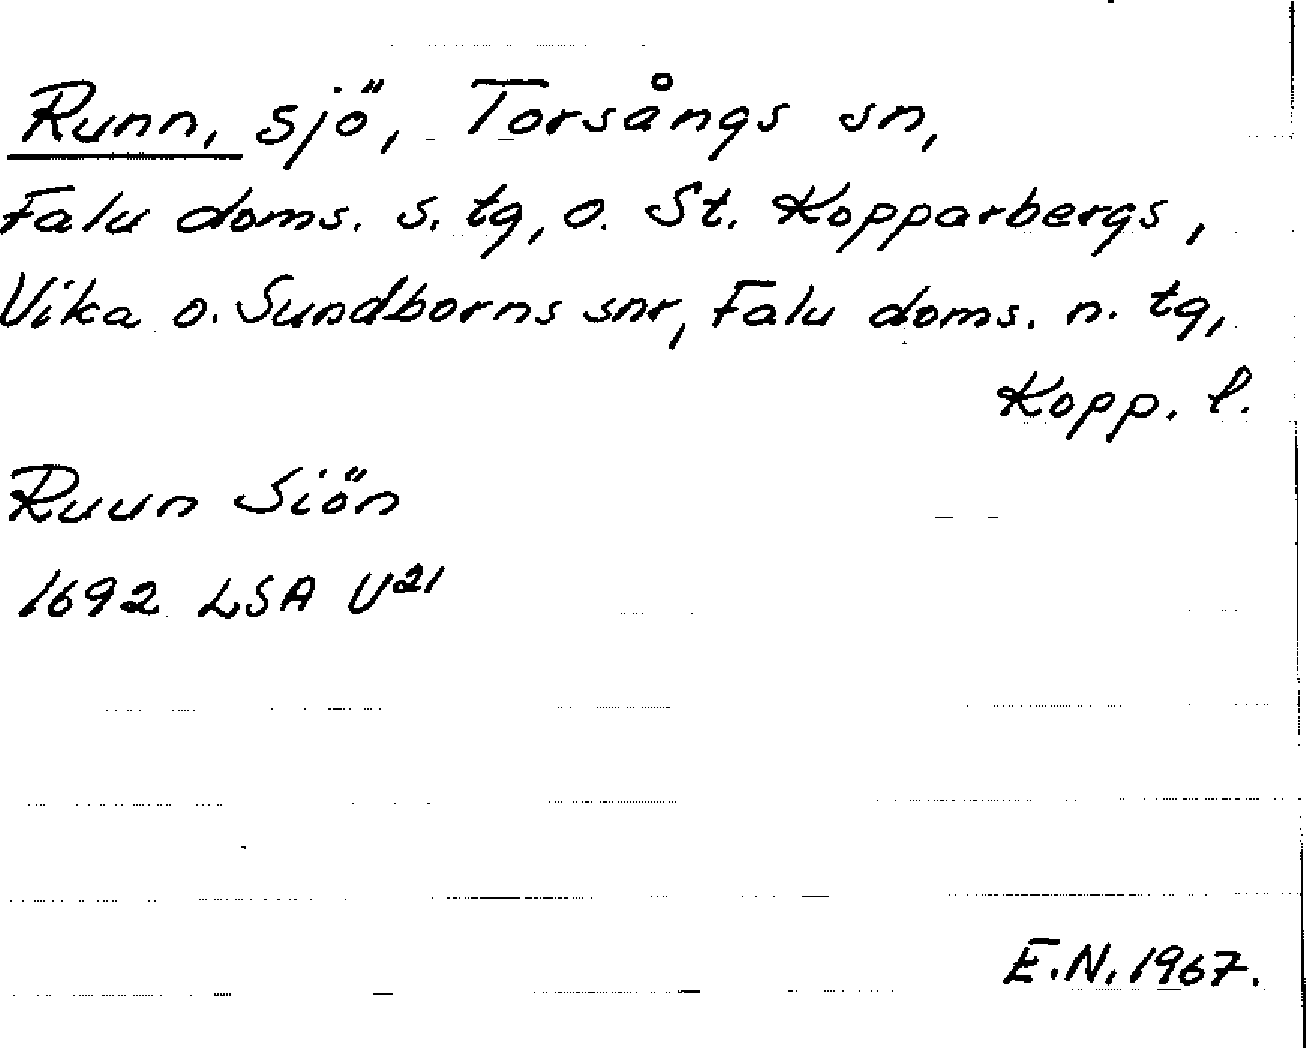 Runn, sjö, Torsångs sn,
Falu doms. s. tg, o. St. Kopparbergs,
Vika o. Sundborns snr, Falu doms. n. tg,
Kopp. l.
Ruun Siön
1692 LSA U²¹
E.N. 1967.